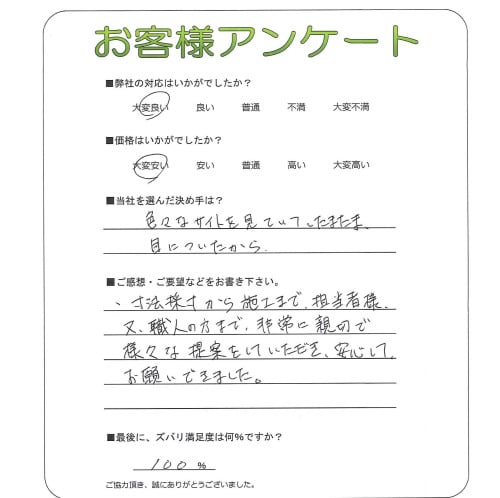 お客様アンケート
■弊社の対応はいかがでしたか?
大変良い 良い 普通 不満 大変不満
■価格はいかがでしたか?
大変安い 安い 普通 高い 大変高い
■当社を選んだ決め手は?
色々なサイトを見ていて、たまたま、
目についたから、
■ご感想・ご要望などをお書き下さい。
・寸法採寸から施工まで、担当者様、
又、職人の方まで、非常に親切で
様々な提案をしていただき、安心して、
お願いできました。
■最後に、ズバリ満足度は何%ですか?
100 %
ご協力頂き、誠にありがとうございました。